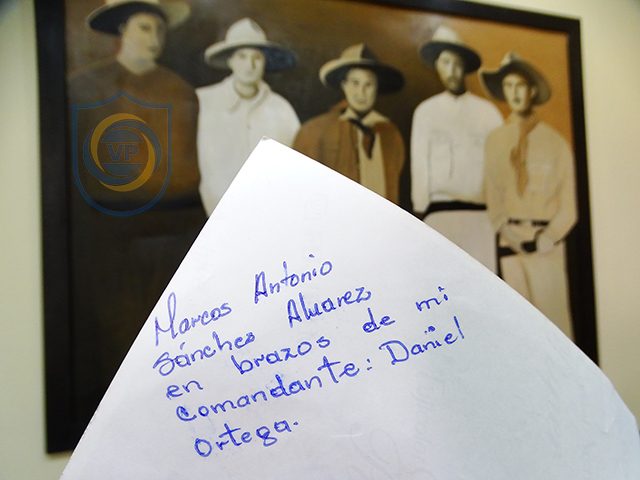 VP
Marcos Antonio
Sánchez Alvarez
en brazos de mi
comandante: Daniel
Ortega.